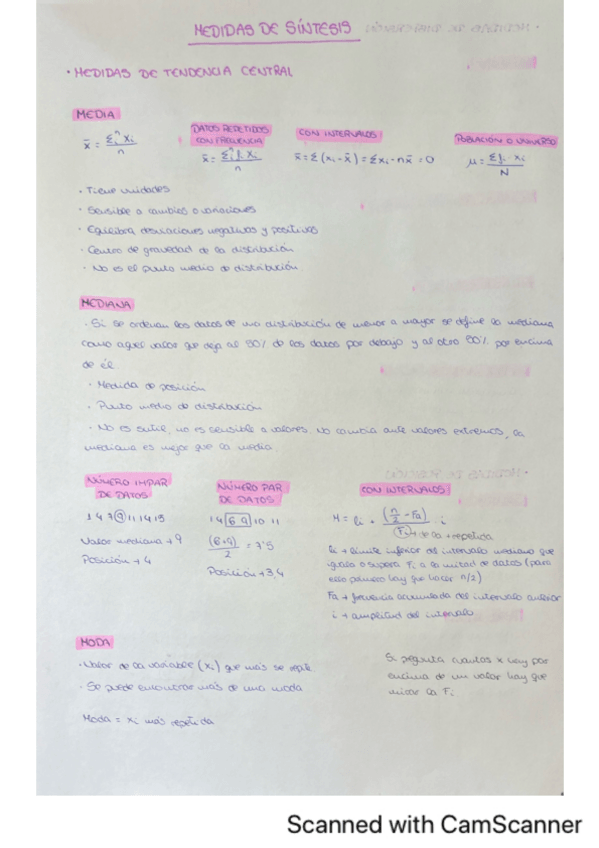 MEDIDAS DE SÍNTESIS
· MEDIDAS DE TENDENCIA CENTRAL
MEDIA
x̄ = Σⁿᵢ xᵢ / n
DATOS REPETIDOS CON FRECUENCIA
x̄ = Σⁿᵢ fᵢ xᵢ / n
CON INTERVALOS
x̄ = Σ (xᵢ - x̄) = Σxᵢ - nx̄ = 0
POBLACIÓN O UNIVERSO
μ = Σfᵢ · xᵢ / N
· Tiene unidades
· Sensible a cambios o variaciones
· Equilibra desviaciones negativas y positivas
· Centro de gravedad de la distribución
· No es el punto medio de distribución
MEDIANA
· Si se ordenan los datos de una distribución de menor a mayor se define la mediana
como aquel valor que deja al 50% de los datos por debajo y al otro 50% por encima
de él
· Medida de posición
· Punto medio de distribución
· No es sutil, no es sensible a valores. No cambia ante valores extremos, la
mediana es mejor que la media
NÚMERO IMPAR
DE DATOS
1 4 7 9 11 14 15
Valor mediana → 9
Posición → 4
NÚMERO PAR
DE DATOS
1 4 6 9 10 11
(6+9) / 2 = 7'5
Posición → 3,4
CON INTERVALOS
M = li + (n/2 - Fa) / Fi · i
→ de la + repetida
li → límite inferior del intervalo mediano que
iguala o supera Fi a la mitad de datos (para
ello primero hay que hacer n/2)
Fa → frecuencia acumulada del intervalo anterior
i → amplitud del intervalo
MODA
· Valor de la variable (xᵢ) que más se repite
· Se puede encontrar más de una moda
Moda = xᵢ más repetida
Si pregunta cuántos x hay por
encima de un valor hay que
mirar la Fi
Scanned with CamScanner